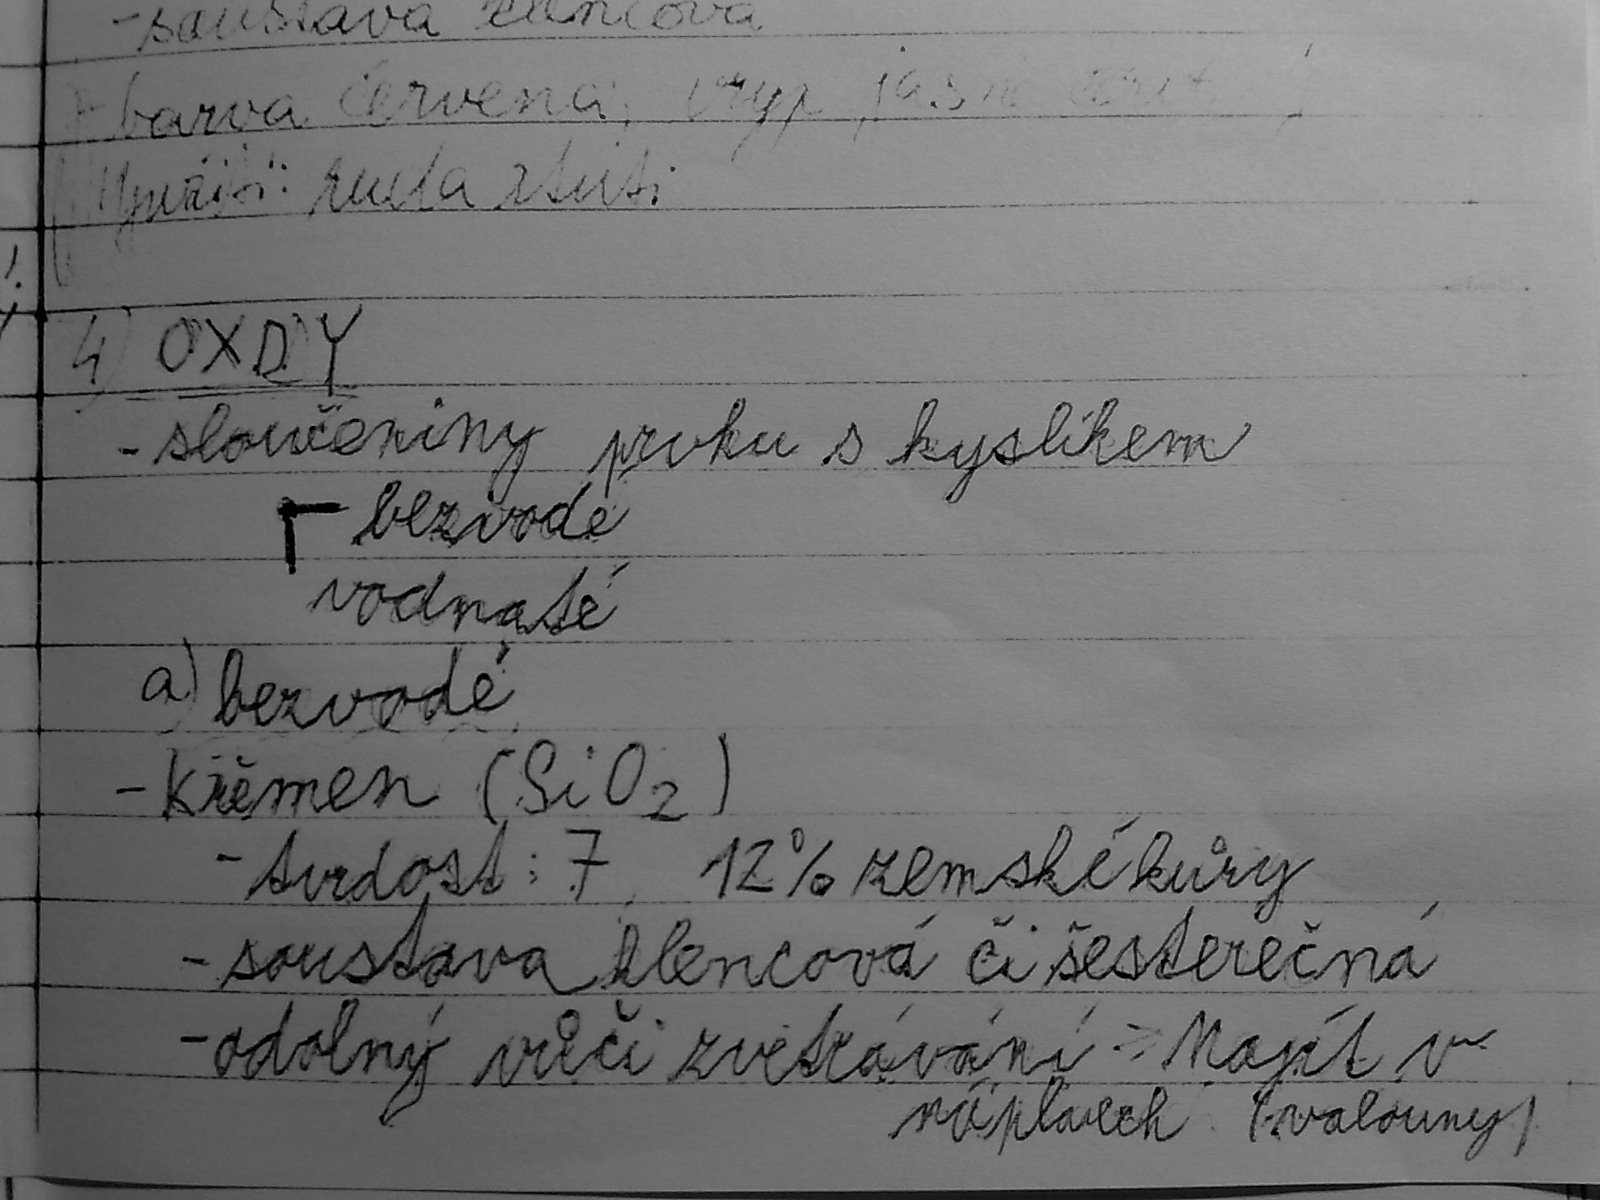 - soustava klencová
barva červená, vryp jasně
Využití: ruda rtuti
4) OXIDY
- sloučeniny prvku s kyslíkem
bezvodé
vodnaté
a) bezvodé
- Křemen (SiO2)
- tvrdost: 7, 12% zemské kůry
- soustava klencová či šesterečná
- odolný vůči zvětrávání => Najít v
náplavech (valouny)